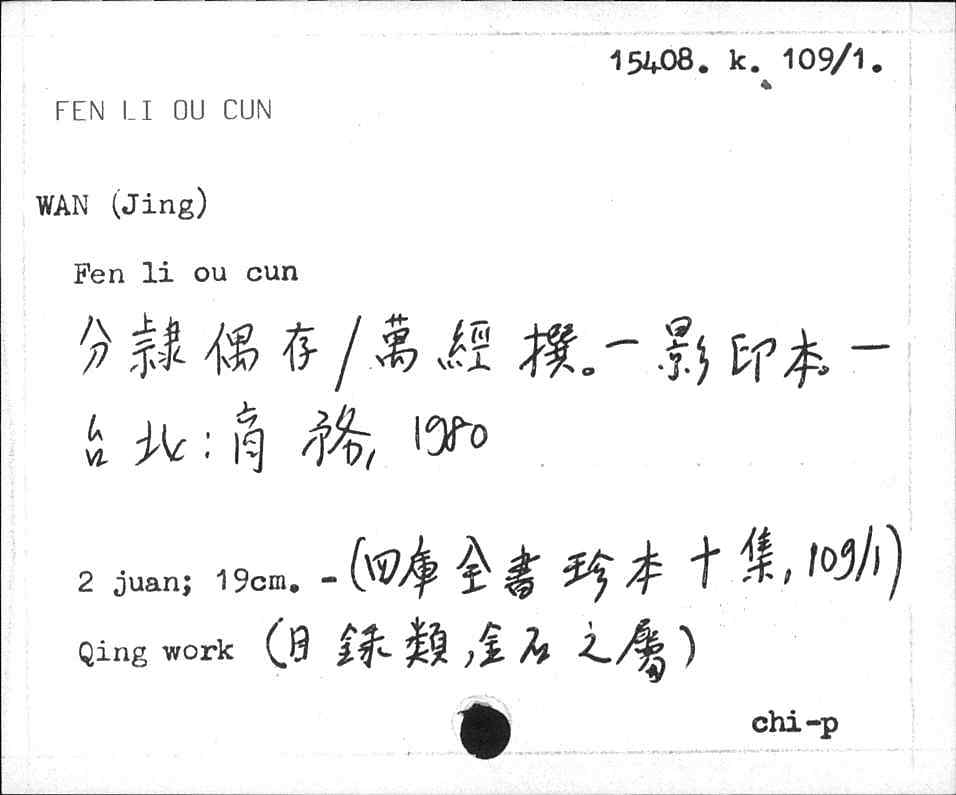 15408. k. 109/1.
FEN LI OU CUN
WAN (Jing)
Fen li ou cun
分隷偶存/萬經撰。—影印本。—
台北:商務, 1980
2 juan; 19cm. - (四庫全書珍本十集, 109/1)
Qing work (目錄類,金石之屬)
chi-p